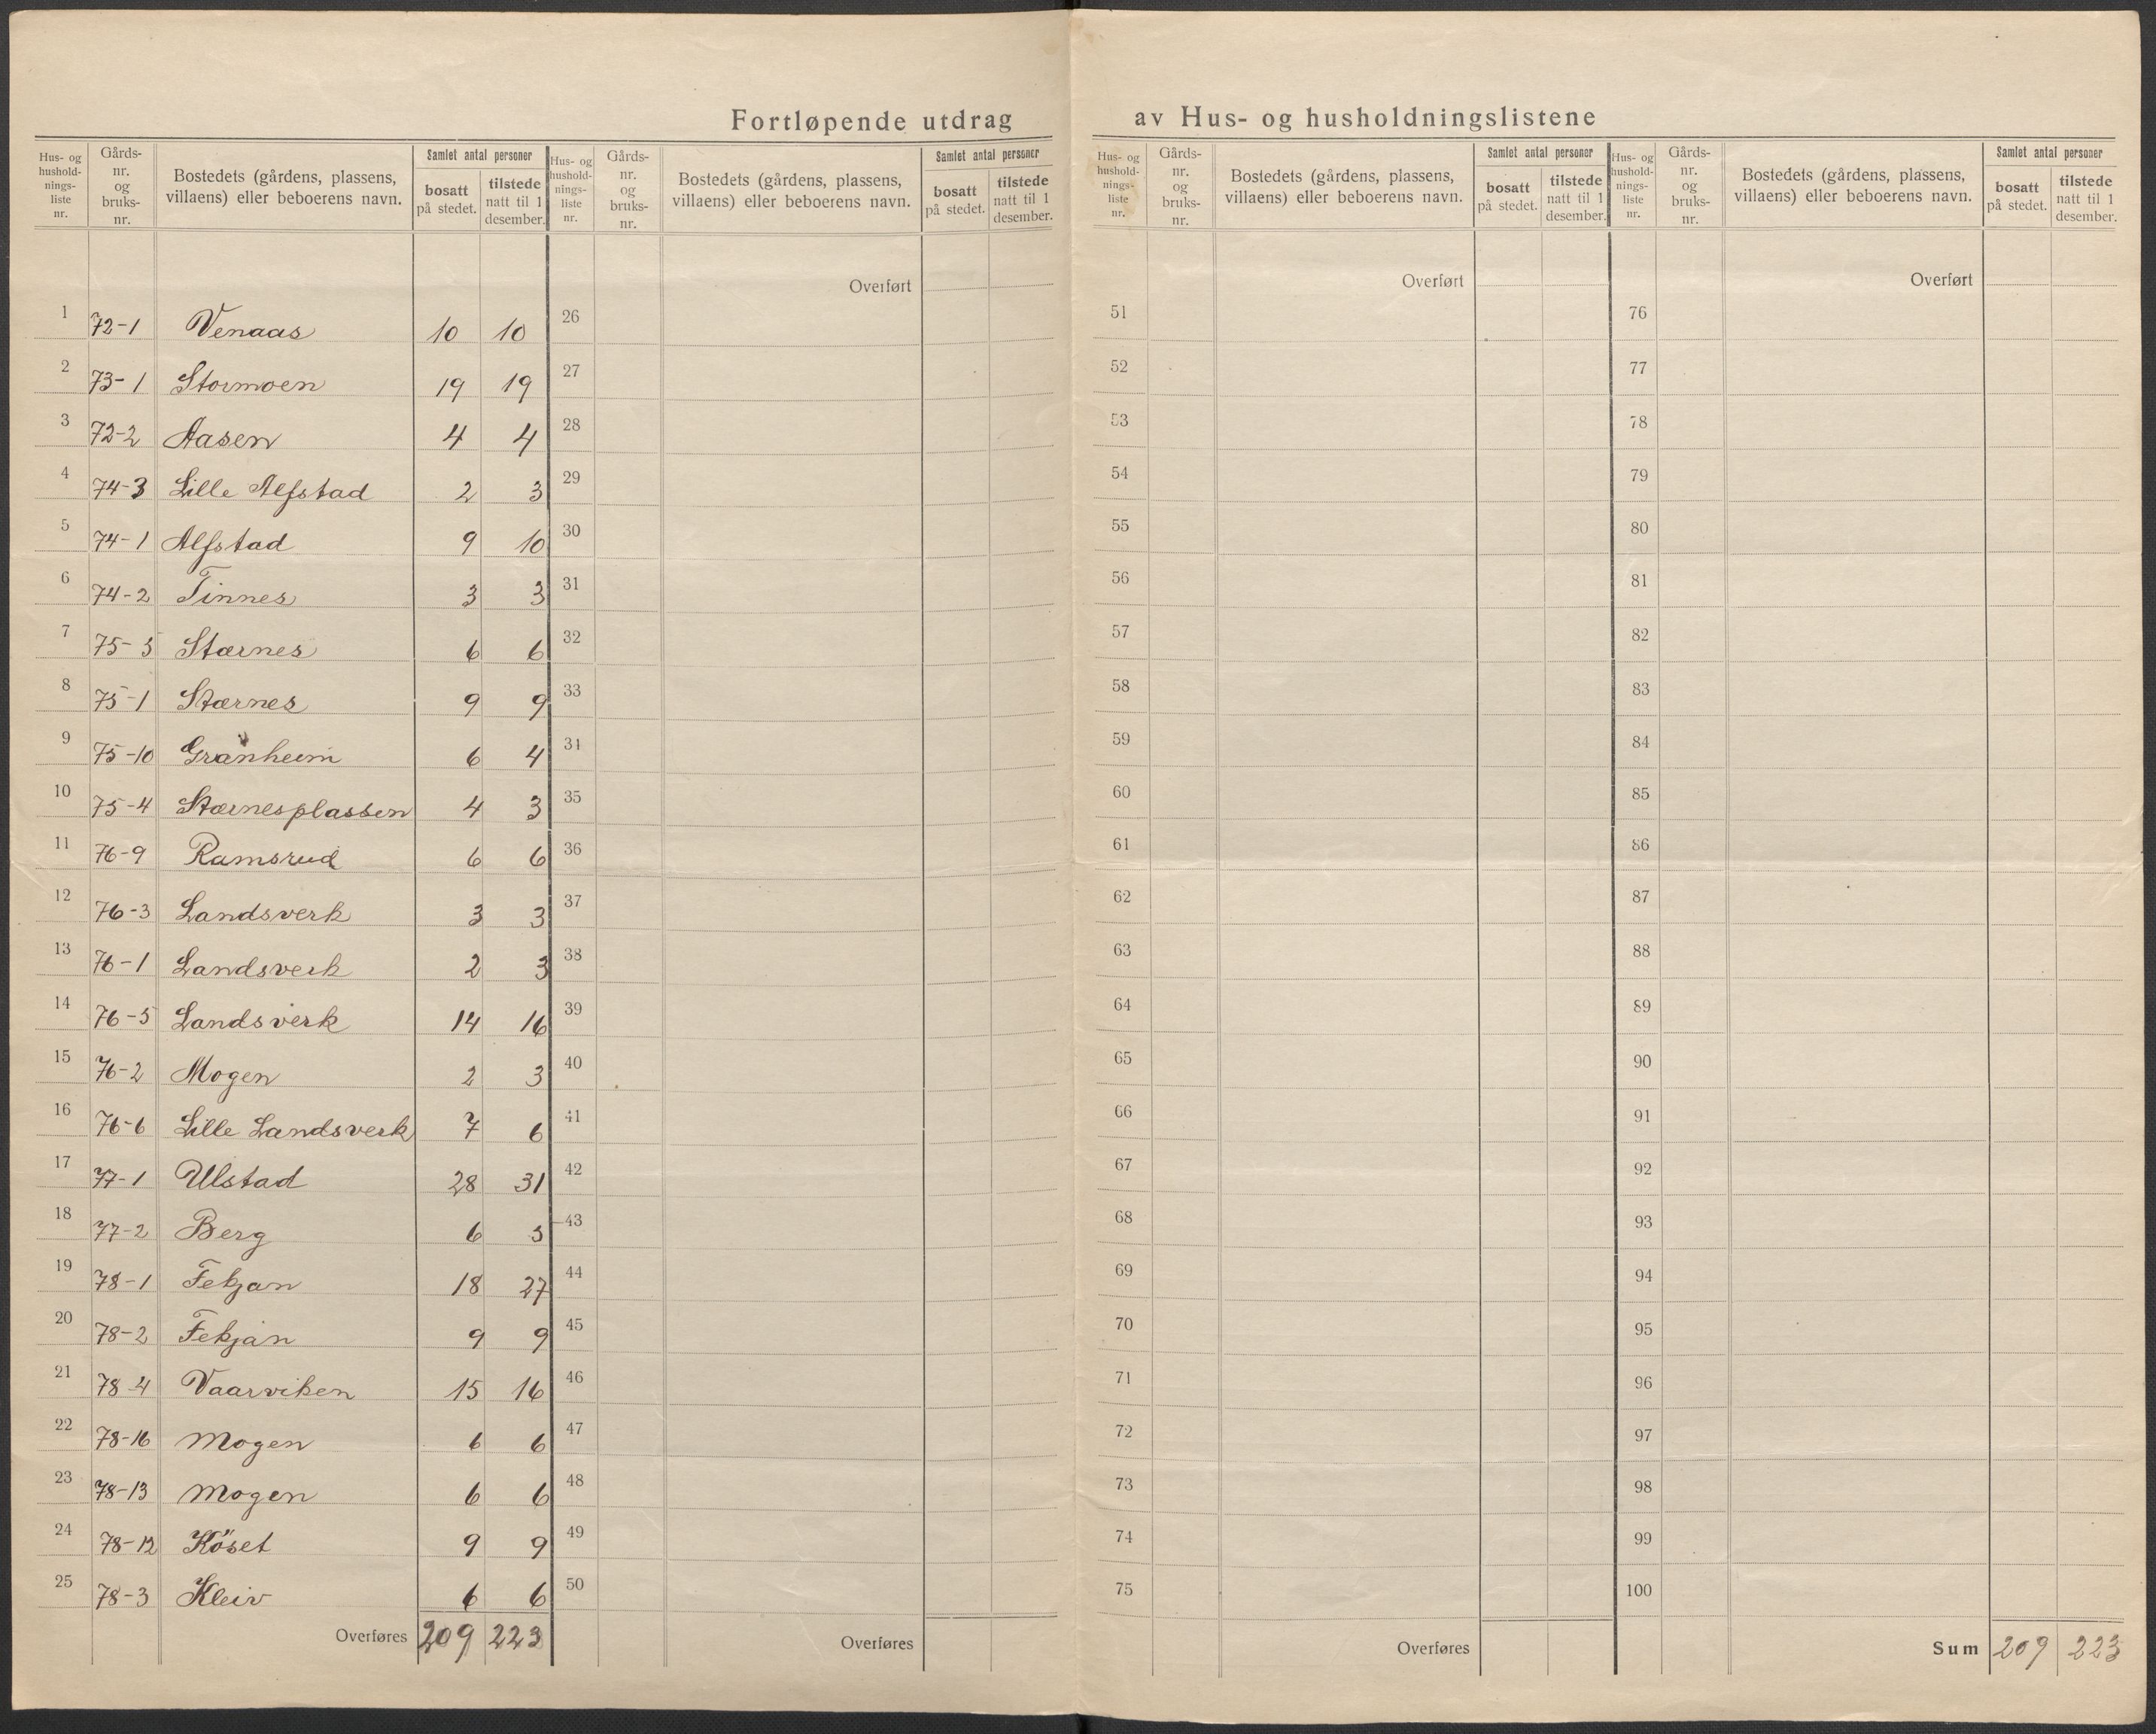 Fortløpende utdrag av Hus- og husholdningslistene
Hus- og husholdnings-liste nr. | Gårds-nr. og bruks-nr. | Bostedets (gårdens, plassens, villaens) eller beboerens navn. | Samlet antal personer | bosatt på stedet. | tilstede natt til 1 desember.
Hus- og husholdnings-liste nr. | Gårds-nr. og bruks-nr. | Bostedets (gårdens, plassens, villaens) eller beboerens navn. | Samlet antal personer | bosatt på stedet. | tilstede natt til 1 desember.
Hus- og husholdnings-liste nr. | Gårds-nr. og bruks-nr. | Bostedets (gårdens, plassens, villaens) eller beboerens navn. | Samlet antal personer | bosatt på stedet. | tilstede natt til 1 desember.
Hus- og husholdnings-liste nr. | Gårds-nr. og bruks-nr. | Bostedets (gårdens, plassens, villaens) eller beboerens navn. | Samlet antal personer | bosatt på stedet. | tilstede natt til 1 desember.
Overført Overført Overført
1 72-1 Venaas 10 10 26 51 76
2 73-1 Stormoen 19 19 27 52 77
3 72-2 Aasen 4 4 28 53 78
4 74-3 Lille Alfstad 2 3 29 54 79
5 74-1 Alfstad 9 10 30 55 80
6 74-2 Tinnes 3 3 31 56 81
7 75-5 Stærnes 6 6 32 57 82
8 75-1 Stærnes 9 9 33 58 83
9 75-10 Granheim 6 4 34 59 84
10 75-4 Stærnesplassen 4 3 35 60 85
11 76-9 Ramsrud 6 6 36 61 86
12 76-3 Landsverk 3 3 37 62 87
13 76-1 Landsverk 2 3 38 63 88
14 76-5 Landsverk 14 16 39 64 89
15 76-2 Mogen 2 3 40 65 90
16 76-6 Lille Landsverk 7 6 41 66 91
17 77-1 Ulstad 28 31 42 67 92
18 77-2 Berg 6 5 43 68 93
19 78-1 Fekjan 18 27 44 69 94
20 78-2 Fekjan 9 9 45 70 95
21 78-4 Vaarviken 15 16 46 71 96
22 78-16 Mogen 6 6 47 72 97
23 78-13 Mogen 6 6 48 73 98
24 78-12 Köset 9 9 49 74 99
25 78-3 Kleiv 6 6 50 75 100
Overføres 209 223 Overføres Overføres Sum 209 223